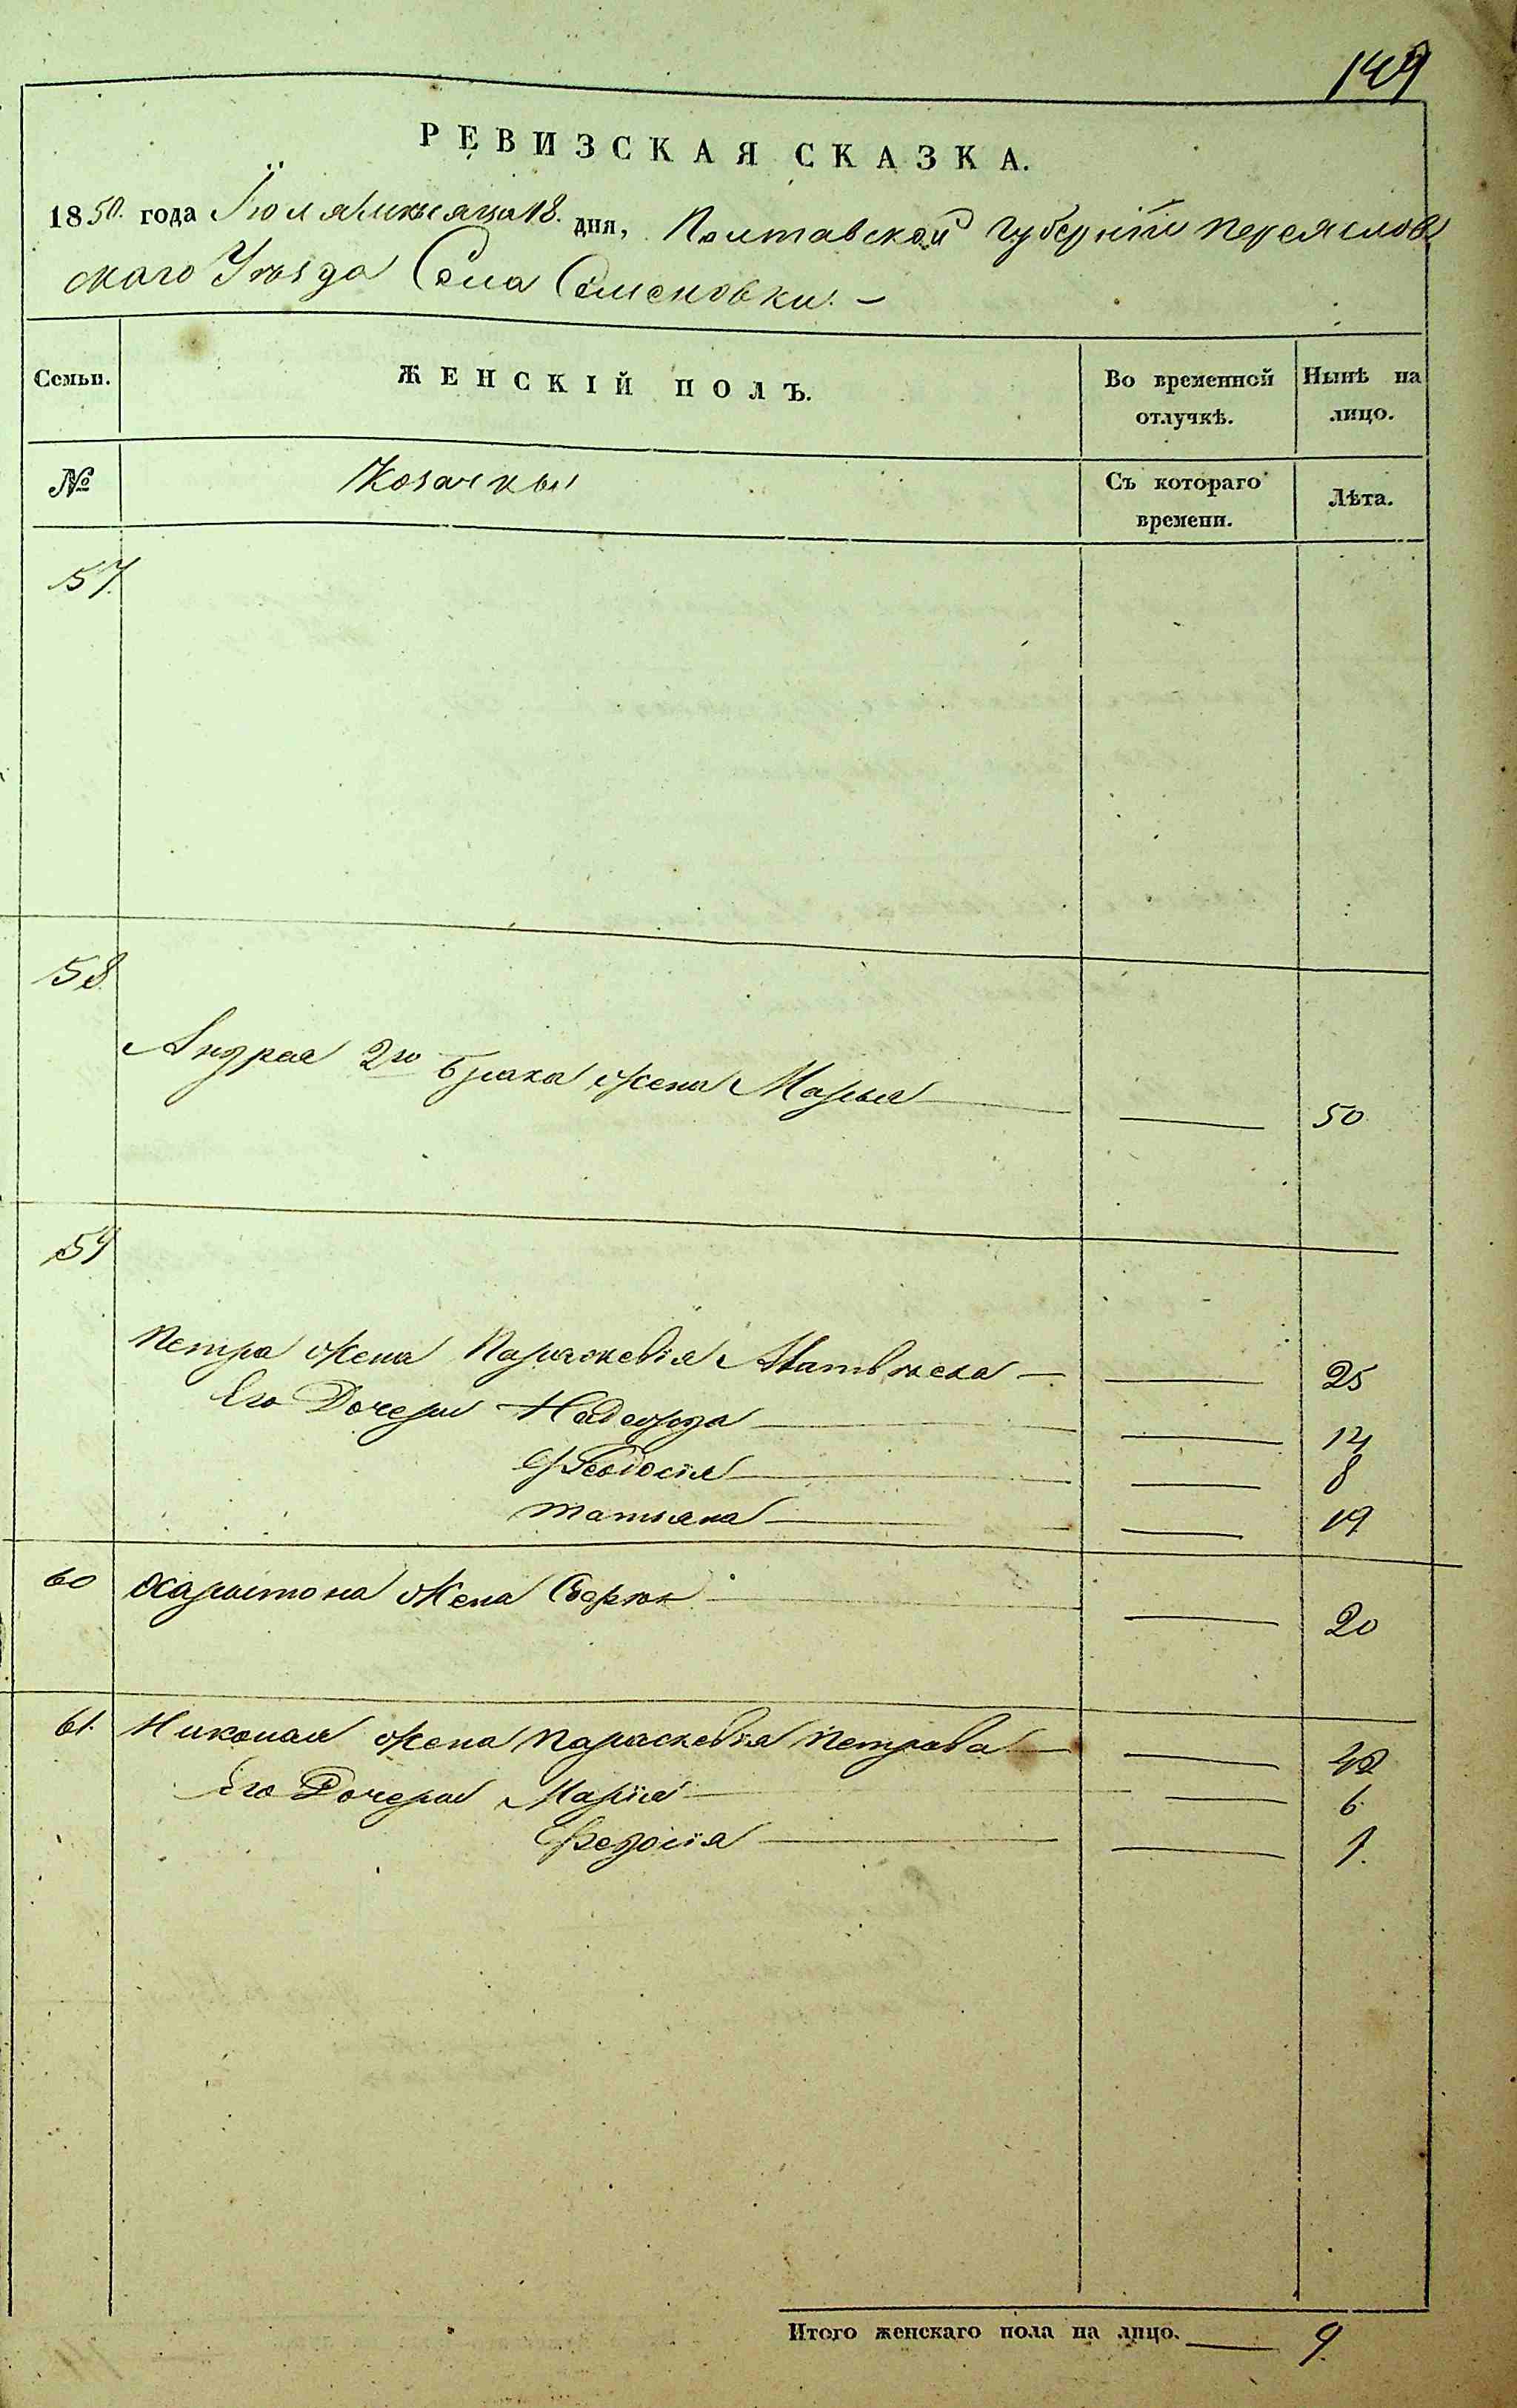 149
РЕВИЗСКАЯ СКАЗКА.
1850. года Іюля мѣсяца 18. дня, Полтавской Губерніи Переяслов
скаго Уѣзда Села Семеновки. —
Семьи. ЖЕНСКІЙ ПОЛЪ. Во временной отлучкѣ. Нынѣ на лицо.
№ Козачки Съ котораго времени. Лѣта.
57.
58.
Андрея 2го брака жена Марья — — 50
59
Петра жена Параскевія Матвѣева — — 25
Его Дочери Надежда — —
Феодосія — — 8
Татьяна — — 19
60 Харитона Жена — — 20
61. Николая жена Параскевія Петрова — —
Его Дочери Марія — — 6.
Федосія — — 1.
Итого женскаго пола на лицо. — 9.